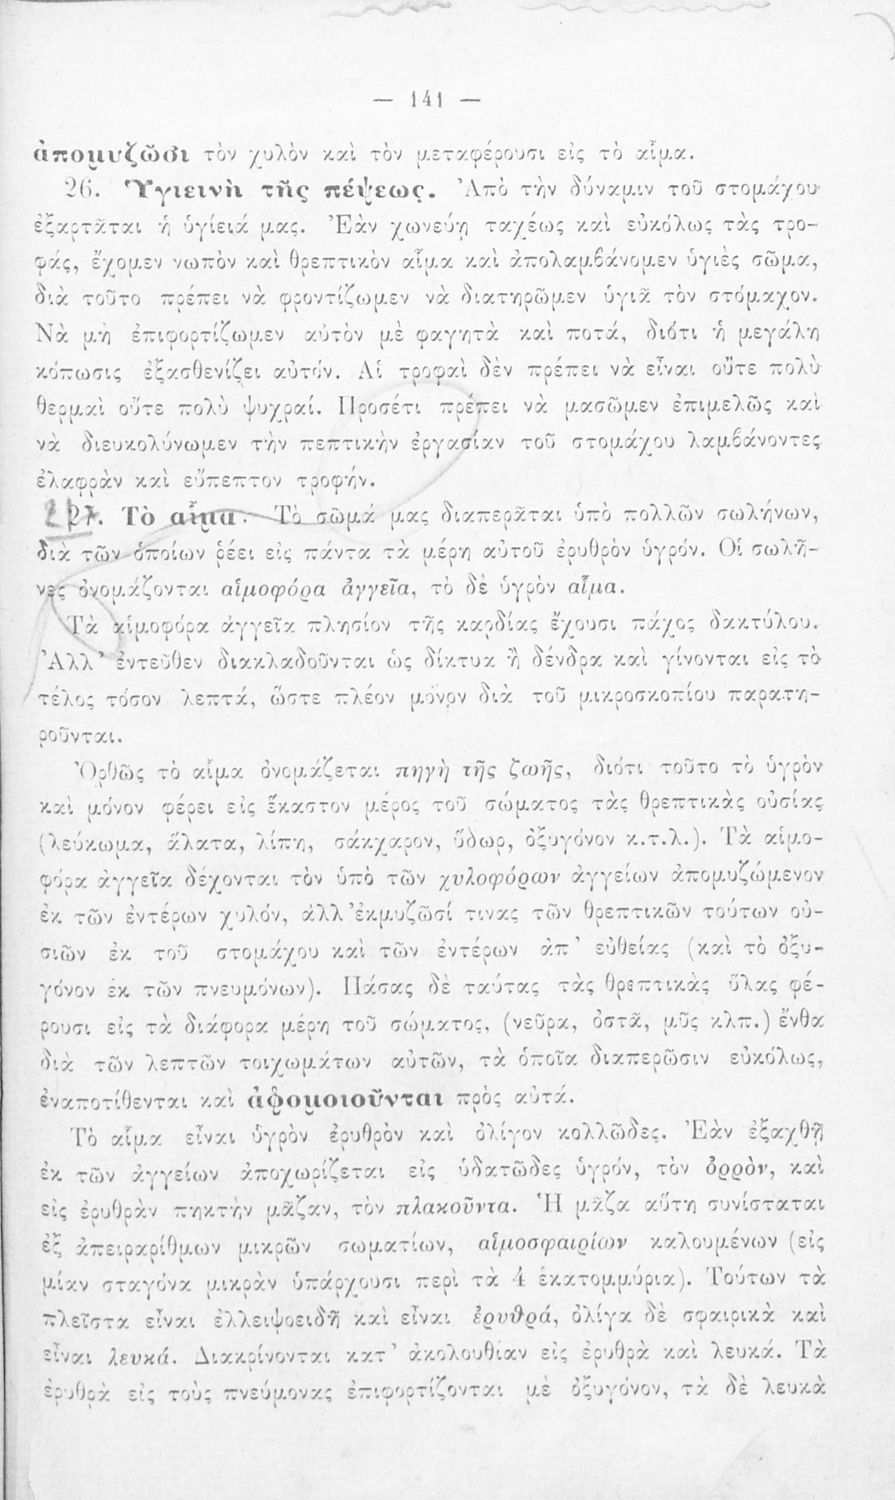 — 141 —
ἀπομυζῶσι τὸν χυλὸν καὶ τὸν μεταφέρουσι εἰς τὸ αἷμα.
26. Ὑγιεινὴ τῆς πέψεως. Ἀπὸ τὴν δύναμιν τοῦ στομάχου
ἐξαρτᾶται ἡ ὑγίειά μας. Ἐὰν χωνεύῃ ταχέως καὶ εὐκόλως τὰς τρο-
φάς, ἔχομεν νωπὸν καὶ θρεπτικὸν αἷμα καὶ ἀπολαμβάνομεν ὑγιὲς σῶμα,
διὰ τοῦτο πρέπει νὰ φροντίζωμεν νὰ διατηρῶμεν ὑγιᾶ τὸν στόμαχον.
Νὰ μὴ ἐπιφορτίζωμεν αὐτὸν μὲ φαγητὰ καὶ ποτά, διότι ἡ μεγάλη
κόπωσις ἐξασθενίζει αὐτόν. Αἱ τροφαὶ δὲν πρέπει νὰ εἶναι οὔτε πολὺ
θερμαὶ οὔτε πολὺ ψυχραί. Προσέτι πρέπει νὰ μασῶμεν ἐπιμελῶς καὶ
νὰ διευκολύνωμεν τὴν πεπτικὴν ἐργασίαν τοῦ στομάχου λαμβάνοντες
ἐλαφρὰν καὶ εὔπεπτον τροφήν.
27. Τὸ αἷμα. Τὸ σῶμά μας διαπερᾶται ὑπὸ πολλῶν σωλήνων,
διὰ τῶν ὁποίων ῥέει εἰς πάντα τὰ μέρη αὐτοῦ ἐρυθρὸν ὑγρόν. Οἱ σωλῆ-
νες ὀνομάζονται αἱμοφόρα ἀγγεῖα, τὸ δὲ ὑγρὸν αἷμα.
Τὰ αἱμοφόρα ἀγγεῖα πλησίον τῆς καρδίας ἔχουσι πάχος δακτύλου.
Ἀλλ' ἐντεῦθεν διακλαδοῦνται ὡς δίκτυα ἢ δένδρα καὶ γίνονται εἰς τὸ
τέλος τόσον λεπτά, ὥστε πλέον μόνον διὰ τοῦ μικροσκοπίου παρατη-
ροῦνται.
Ὀρθῶς τὸ αἷμα ὀνομάζεται πηγὴ τῆς ζωῆς, διότι τοῦτο τὸ ὑγρὸν
καὶ μόνον φέρει εἰς ἕκαστον μέρος τοῦ σώματος τὰς θρεπτικὰς οὐσίας
(λεύκωμα, ἅλατα, λίπη, σάκχαρον, ὕδωρ, ὀξυγόνον κ.τ.λ.). Τὰ αἱμο-
φόρα ἀγγεῖα δέχονται τὸν ὑπὸ τῶν χυλοφόρων ἀγγείων ἀπομυζώμενον
ἐκ τῶν ἐντέρων χυλόν, ἀλλ' ἐκμυζῶσί τινας τῶν θρεπτικῶν τούτων οὐ-
σιῶν ἐκ τοῦ στομάχου καὶ τῶν ἐντέρων ἀπ' εὐθείας (καὶ τὸ ὀξυ-
γόνον ἐκ τῶν πνευμόνων). Πάσας δὲ ταύτας τὰς θρεπτικὰς ὕλας φέ-
ρουσι εἰς τὰ διάφορα μέρη τοῦ σώματος, (νεῦρα, ὀστᾶ, μῦς κλπ.) ἔνθα
διὰ τῶν λεπτῶν τοιχωμάτων αὐτῶν, τὰ ὁποῖα διαπερῶσιν εὐκόλως,
ἐναποτίθενται καὶ ἀφομοιοῦνται πρὸς αὐτά.
Τὸ αἷμα εἶναι ὑγρὸν ἐρυθρὸν καὶ ὀλίγον κολλῶδες. Ἐὰν ἐξαχθῇ
ἐκ τῶν ἀγγείων ἀποχωρίζεται εἰς ὑδατῶδες ὑγρόν, τὸν ὀρρὸν, καὶ
εἰς ἐρυθρὰν πηκτὴν μᾶζαν, τὸν πλακοῦντα. Ἡ μᾶζα αὕτη συνίσταται
ἐξ ἀπειραρίθμων μικρῶν σωματίων, αἱμοσφαιρίων καλουμένων (εἰς
μίαν σταγόνα μικρὰν ὑπάρχουσι περὶ τὰ 4 ἑκατομμύρια). Τούτων τὰ
πλεῖστα εἶναι ἐλλειψοειδῆ καὶ εἶναι ἐρυθρά, ὀλίγα δὲ σφαιρικὰ καὶ
εἶναι λευκά. Διακρίνονται κατ' ἀκολουθίαν εἰς ἐρυθρὰ καὶ λευκά. Τὰ
ἐρυθρὰ εἰς τοὺς πνεύμονας ἐπιφορτίζονται μὲ ὀξυγόνον, τὰ δὲ λευκὰ